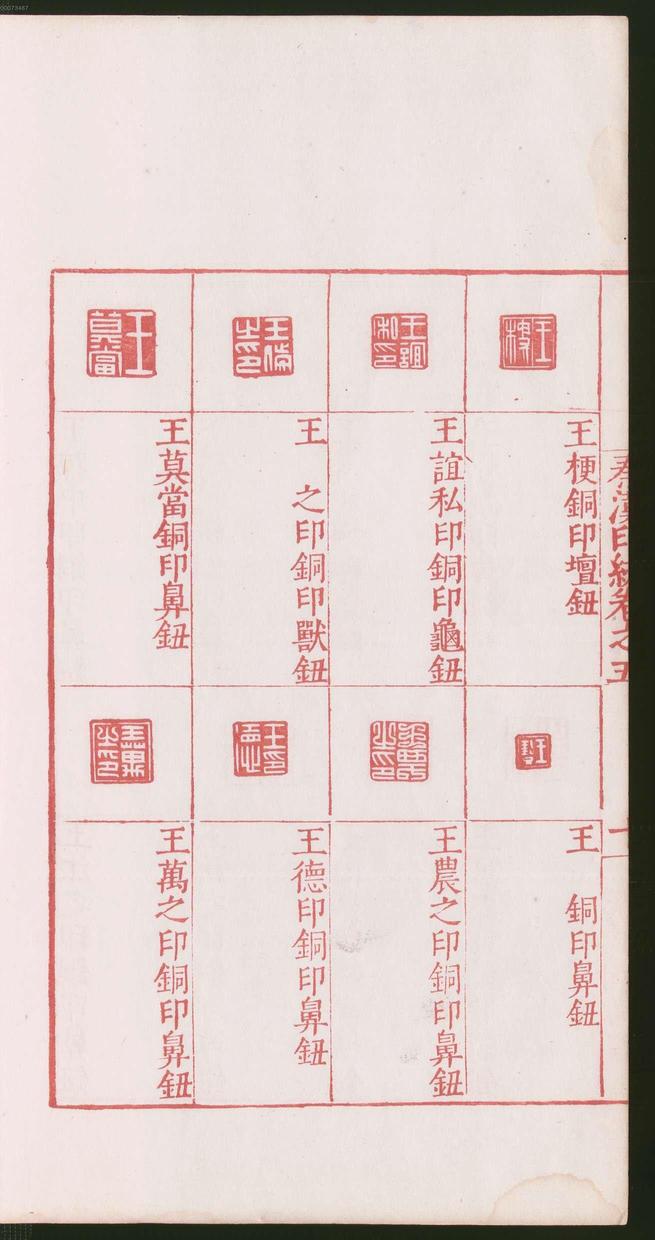 00073487
秦漢印統卷之五
王梗銅印壇鈕
王誼私印銅印龜鈕
王　之印銅印獸鈕
王莫當銅印鼻鈕
王　銅印鼻鈕
王農之印銅印鼻鈕
王德印銅印鼻鈕
王萬之印銅印鼻鈕